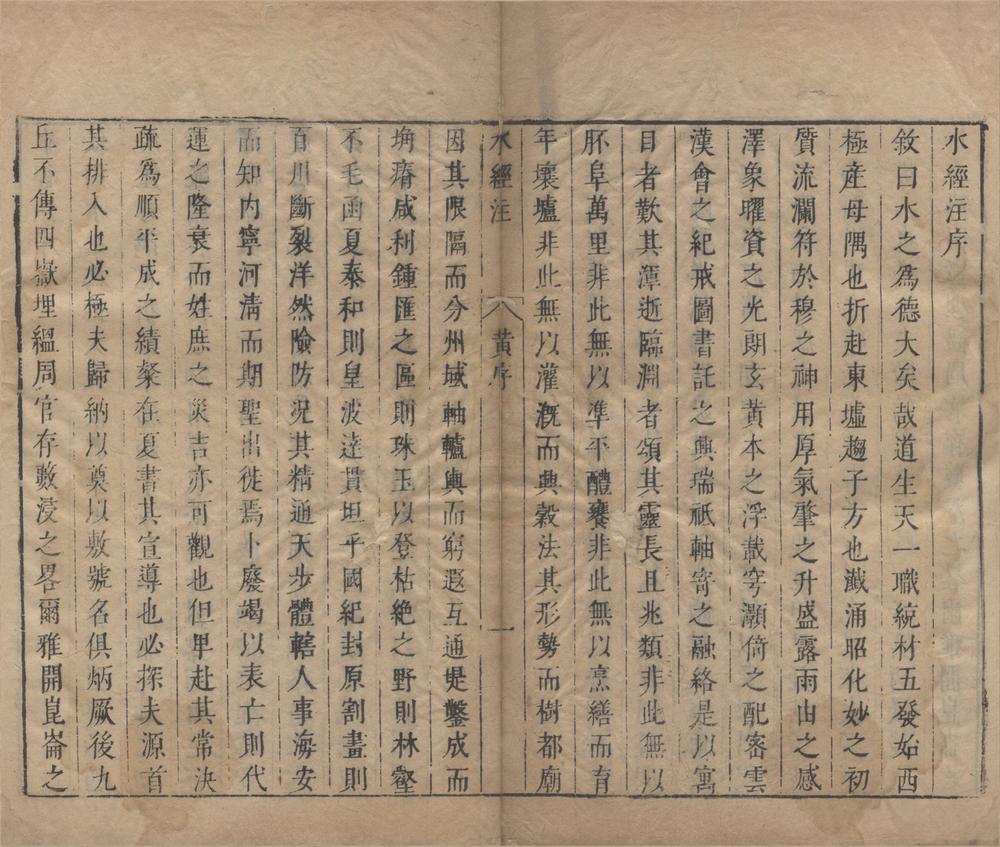 水經注序
敘曰水之爲德大矣哉道生天一職統材五發始西
極産母隅也折赴東墟趨子方也濈涌昭化妙之初
質流瀾符於穆之神用厚氣肇之升盛露雨由之感
澤象曜資之光朗玄黄本之浮載穹灝倚之配密雲
漢會之紀戒圖書託之興瑞祇軸寄之融絡是以寓
目者歎其潭逝臨淵者頌其靈長且兆類非此無以
胚阜萬里非此無以凖平醴饔非此無以烹繕而育
年壤壚非此無以灌漑而興穀法其形勢而樹都廟
水經注 黄序 一
因其限隔而分州域軸轤輿而窮遐互通堤鑿成而
埆瘠咸利鍾匯之區則珠玉以登枯絶之野則林壑
不毛函夏泰和則皇波達貫坦乎國紀封原割畫則
百川斷裂洋然險防况其精通天步體轄人事海安
而知内寧河淸而期聖出徙焉卜廢竭以表亡則代
運之隆衰而姓庶之災吉亦可觀也但畢赴其常決
疏爲順平成之績粲在夏書其宣導也必探夫源首
其排入也必極夫歸納以奠以敷號名俱炳厥後九
丘不傳四嶽埋緼周官存藪浸之畧爾雅開崑崙之